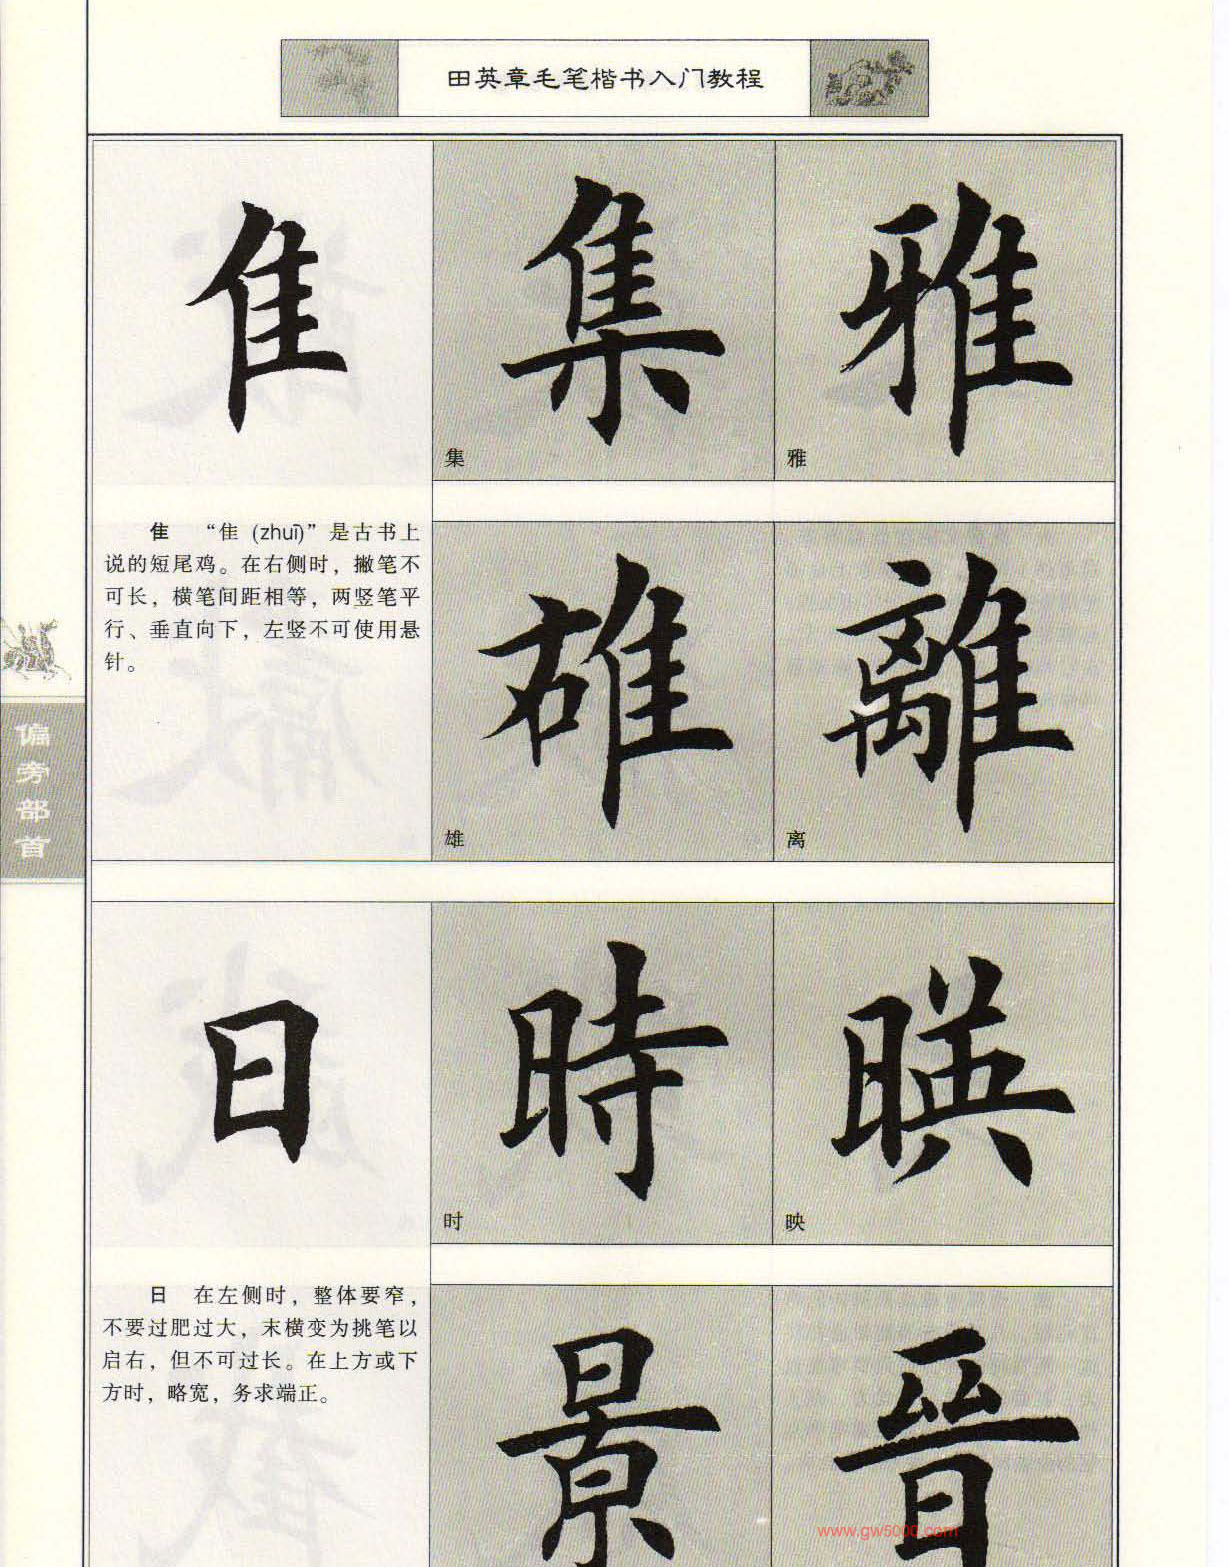 田英章毛笔楷书入门教程
隹 集 雅
集 雅
隹 “隹 (zhuī)” 是古书上
说的短尾鸡。在右侧时，撇笔不
可长，横笔间距相等，两竖笔平
行、垂直向下，左竖不可使用悬
针。
雄 離
雄 离
偏旁部首
日 時 暎
时 映
日 在左侧时，整体要窄，
不要过肥过大，末横变为挑笔以
启右，但不可过长。在上方或下
方时，略宽，务求端正。
景 晉
www.gw5000.com